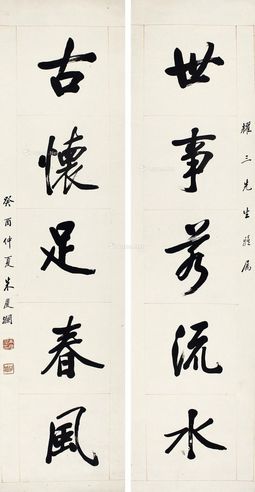 耀三先生雅屬
世事若流水
古懷足春風
癸酉仲夏朱